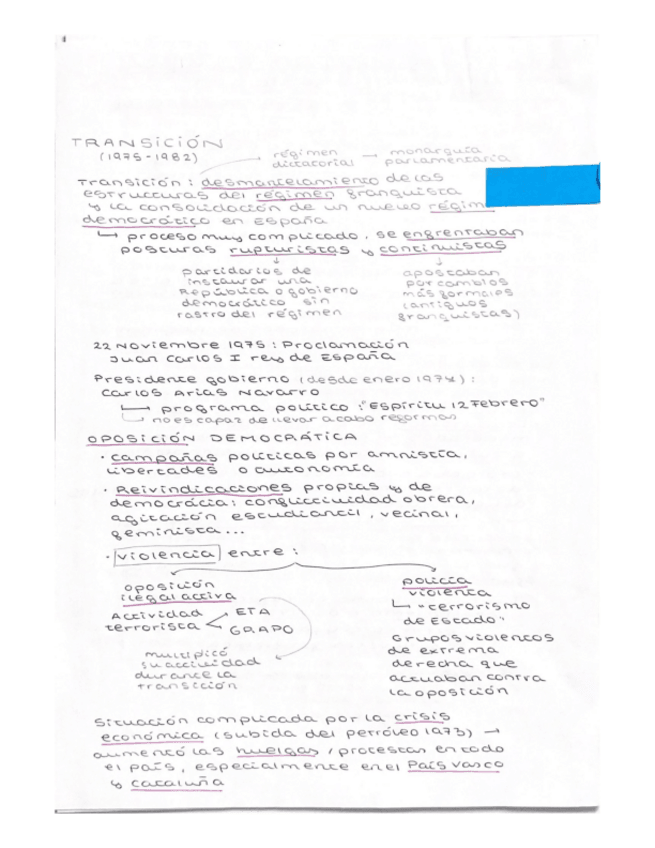 TRANSICIÓN
(1975-1982)
régimen dictatorial → monarquía parlamentaria
Transición : desmantelamiento de las
estructuras del régimen franquista
y la consolidación de un nuevo régim
democrático en España
↳ proceso muy complicado, se enfrentaban
posturas rupturistas y continuistas
partidarios de
instaurar una
República o gobierno
democrático sin
rastro del régimen
apostaban
por cambios
más formales
(antiguos
franquistas)
22 Noviembre 1975 : Proclamación
Juan Carlos I rey de España
Presidente gobierno (desde enero 1974) :
Carlos Arias Navarro
↳ programa político : "Espíritu 12 Febrero"
↳ no es capaz de llevar a cabo reformas
OPOSICIÓN DEMOCRÁTICA
· campañas políticas por amnistía,
libertades o autonomía
· Reivindicaciones propias y de
democrácia : conflictividad obrera,
agitación estudiantil, vecinal,
feminista...
· violencia entre :
oposición
ilegal activa
Actividad
terrorista < ETA
GRAPO
multiplicó
su actividad
durante la
transición
policía
violenta
↳ "terrorismo
de Estado"
Grupos violentos
de extrema
derecha que
actuaban contra
la oposición
Situación complicada por la crisis
económica (subida del petróleo 1973) →
aumentó las huelgas / protestas en todo
el país, especialmente en el País vasco
y cataluña